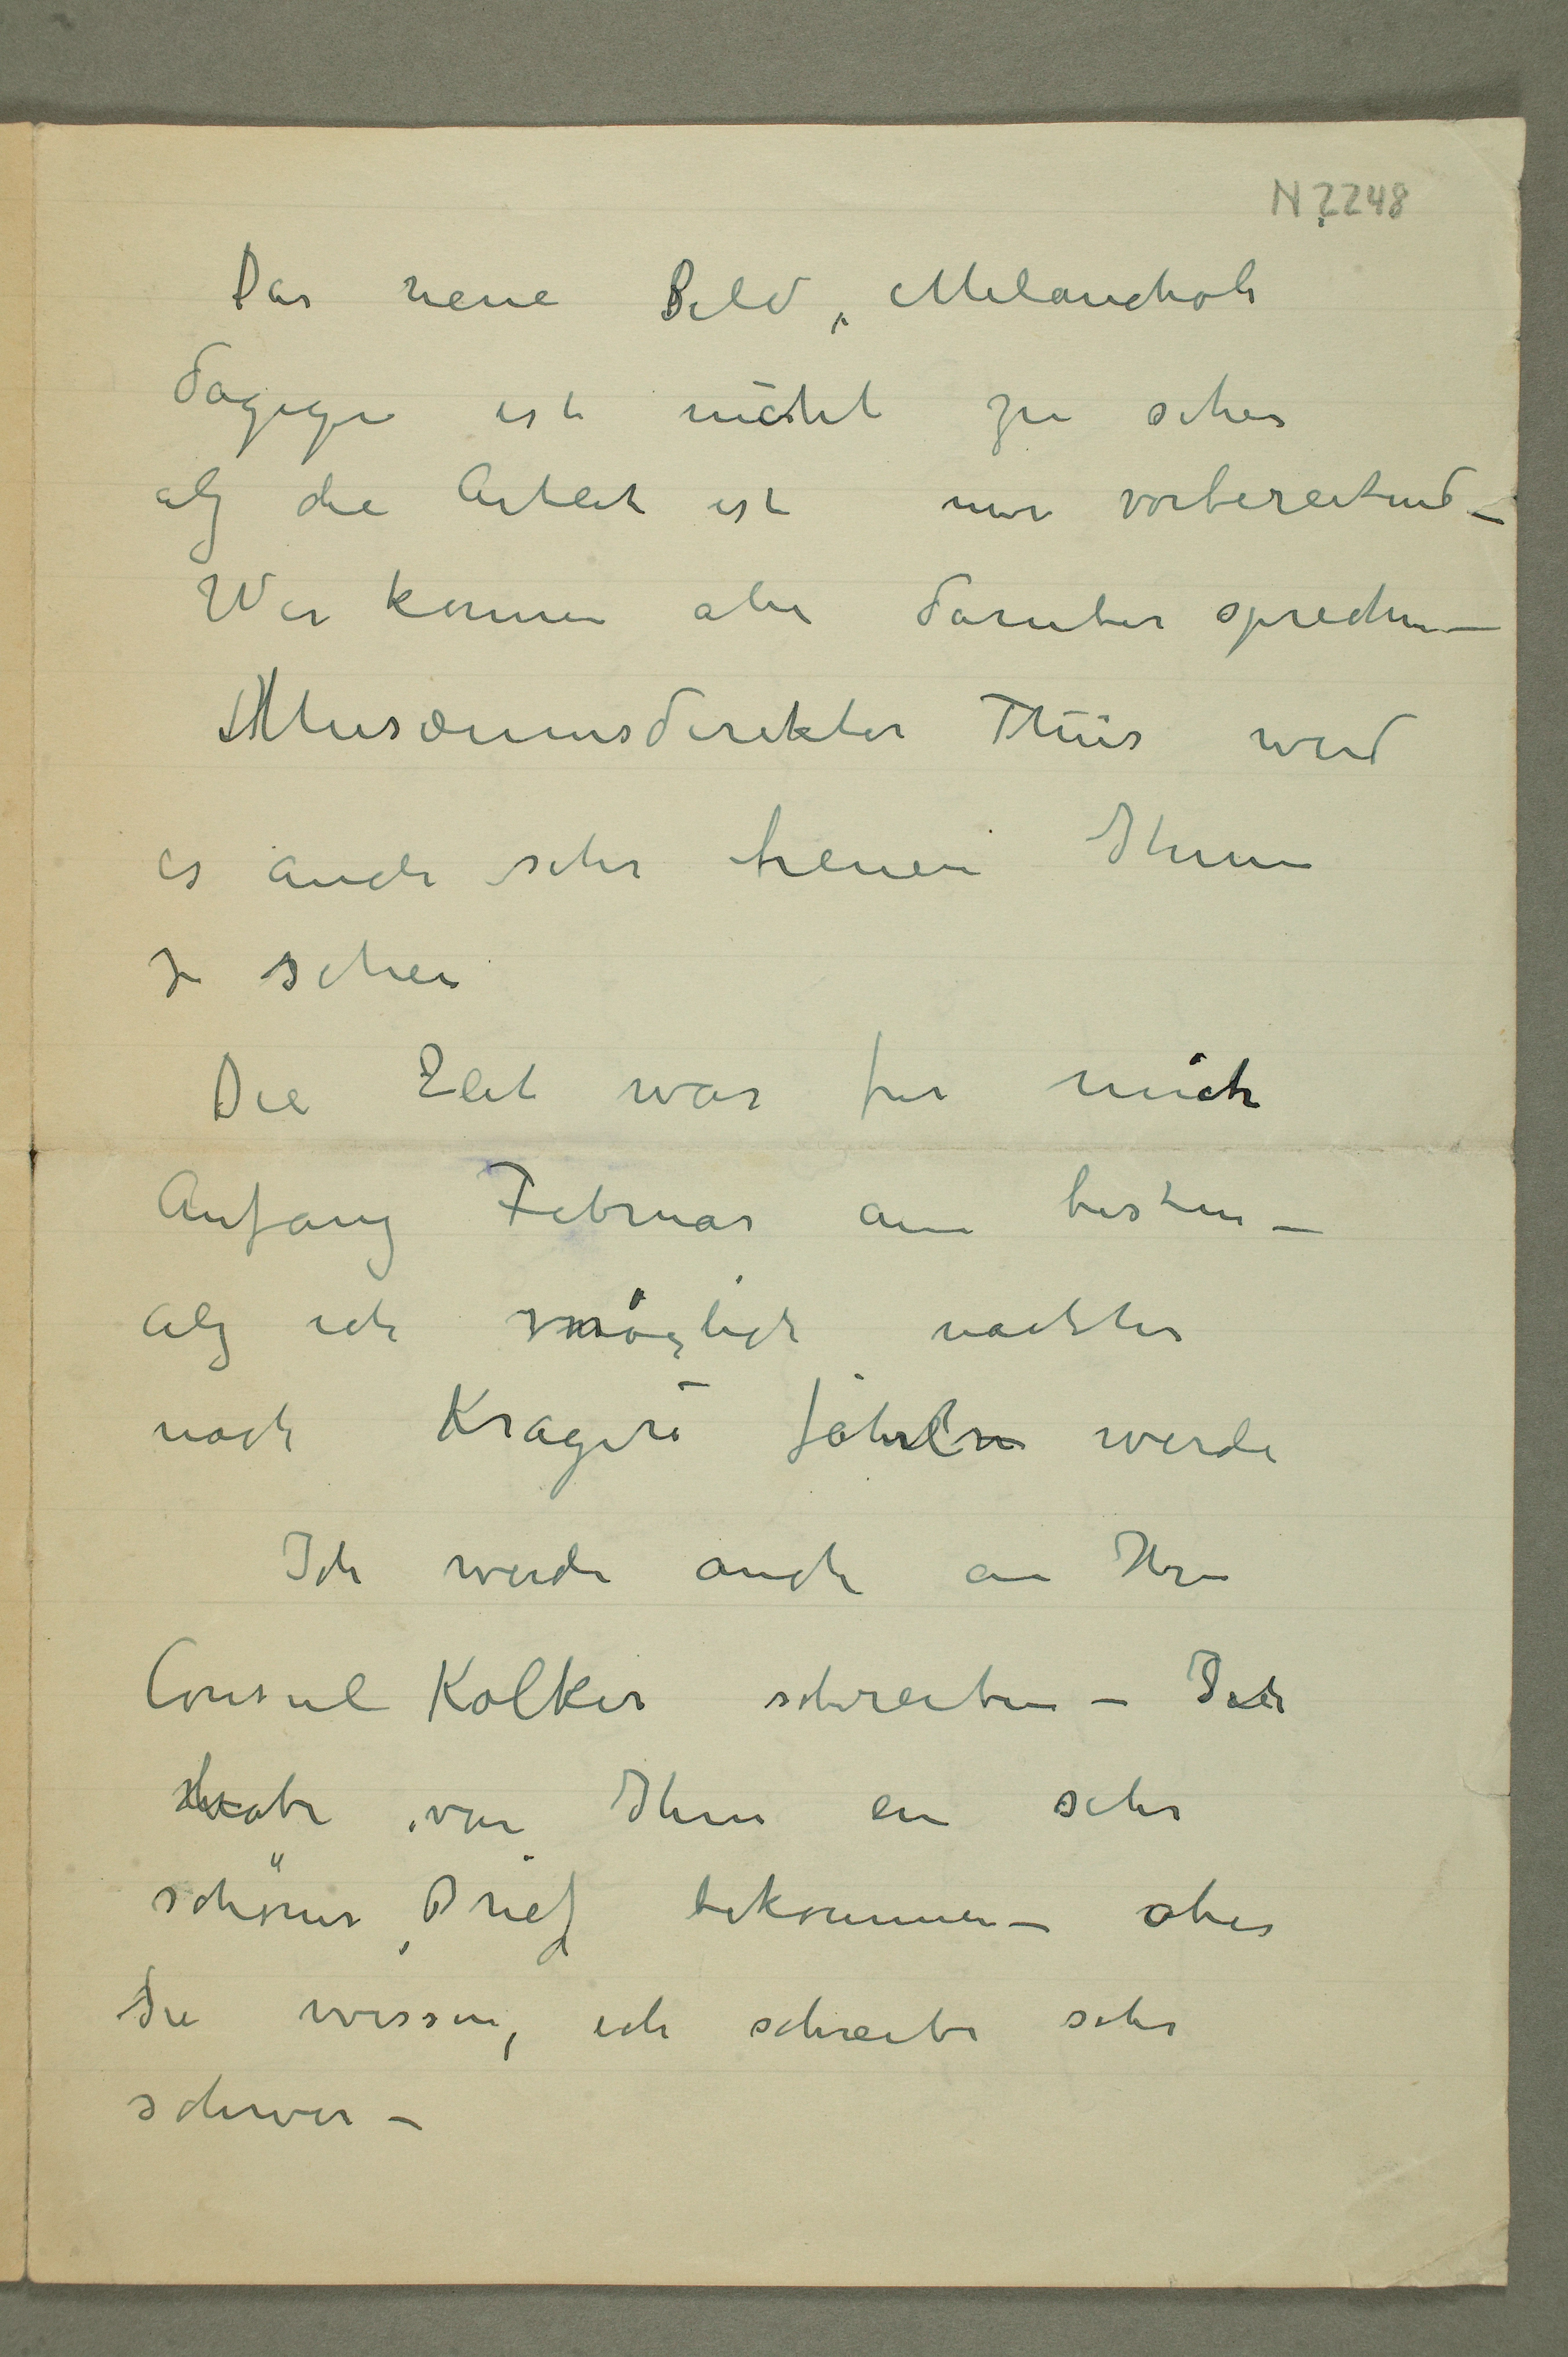 N 2248
Das neue Bild, Melancholi
dagegen ist nicht zu sehen
als die Arbeit ist nur vorbereitend –
Wir können aber daruber sprechen –
Musæumsdirektor Thiis wird
es auch sehr freuen Ihnen
zu sehen
Die Zeit war fur mich
Anfang Februar am besten –
als ich möglich nachher
nach Kragerö fahren werde
Ich werde auch an Hrn
Consul Kolker schreiben – Ich
habe von Ihm ein sehr
schöner Brief bekommen – aber
Sie wissen, ich schreibe sehr
schwer –